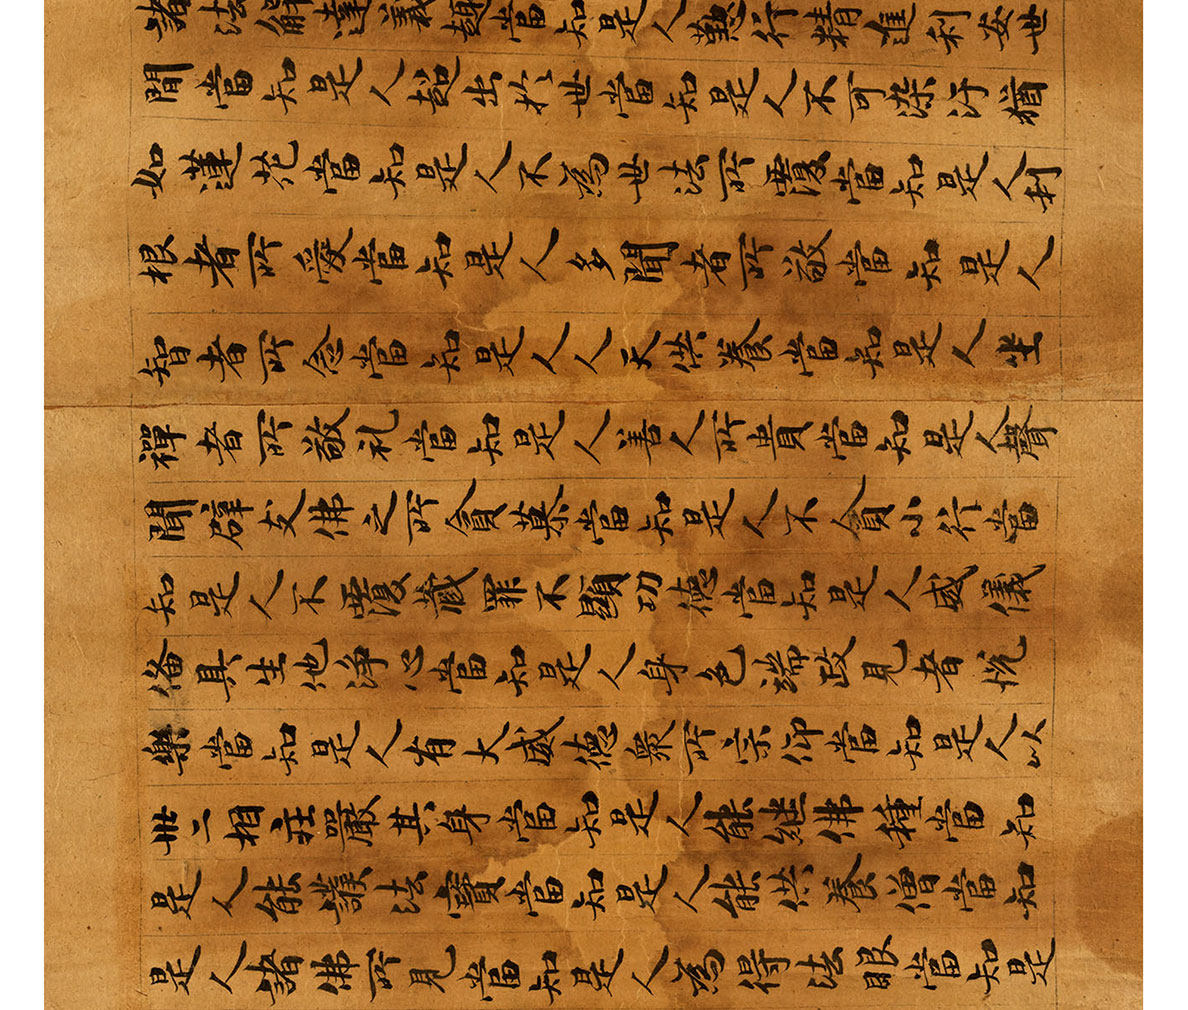 諸法解達義趣當知是人懃行精進利安世
間當知是人超出於世當知是人不可染汙猶
如蓮花當知是人不為世法所覆當知是人利
根者所愛當知是人多聞者所敬當知是人
智者所念當知是人人天供養當知是人坐
禪者所敬礼當知是人善人所貴當知是人聲
聞辟支佛之所貪慕當知是人不貪小行當
知是人不覆藏罪不顯功德當知是人威儀
俻具生他淨心當知是人身色端政見者悅
樂當知是人有大威德衆所宗仰當知是人以
卅二相莊嚴其身當知是人能継佛種當知
是人能護法寶當知是人能供養僧當知
是人諸佛所見當知是人為得法眼當知是